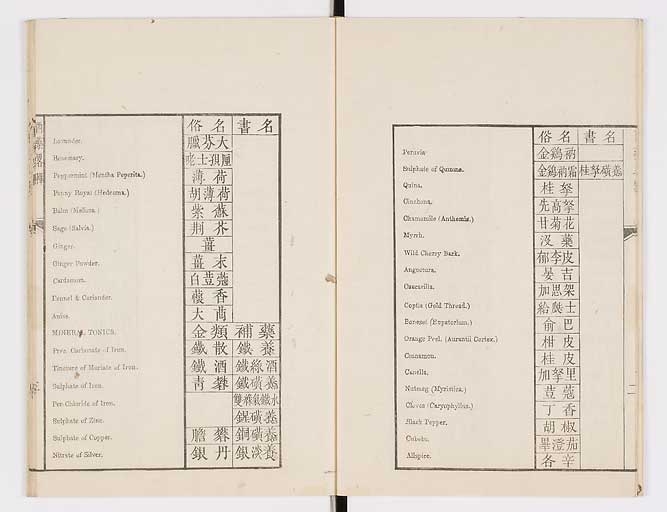 俗名 書名
Peruvia 金鷄衲
Sulphate of Quinine. 金鷄衲霜 桂孥礦養
Quina. 桂孥
Cinchona. 先高孥
Chamomile (Anthemis.) 甘菊花
Myrrh. 沒藥
Wild Cherry Bark. 郁李皮
Angustura. 晏吉
Cascarilla. 加思架
Coptis (Gold Thread.)
Boneset (Eupatorium.) 俞巴
Orange Peel. (Aurantii Cortex.) 柑皮
Cinnamon. 桂皮
Canella. 加孥里
Nutmeg (Myristica.) 荳蔻
Cloves (Caryophyllus.) 丁香
Black Pepper. 胡椒
Cubebs. 畢澄茄
Allspice. 各辛
二
俗名 書名
Lavender. 臘芬大
Rosemary.
Peppermint (Mentha Peperita.) 薄荷
Penny Royal (Hedeoma.) 胡薄荷
Balm (Melissa.) 紫蘇
Sage (Salvia.) 荆芥
Ginger. 薑
Ginger Powder. 薑末
Cardamom. 白荳蔻
Fennel & Coriander.
Anise. 大茴
MINERAL TONICS. 金類補藥
Prve. Carbonate of Iron. 鐵散 鐵養
Tincture of Muriate of Iron. 鐵酒 鐵綠酒
Sulphate of Iron. 青礬 鐵礦養
Per-Chloride of Iron.
Sulphate of Zinc. 鋅礦養
Sulphate of Copper. 膽礬 銅礦養
Nitrate of Silver. 銀丹 銀淡養